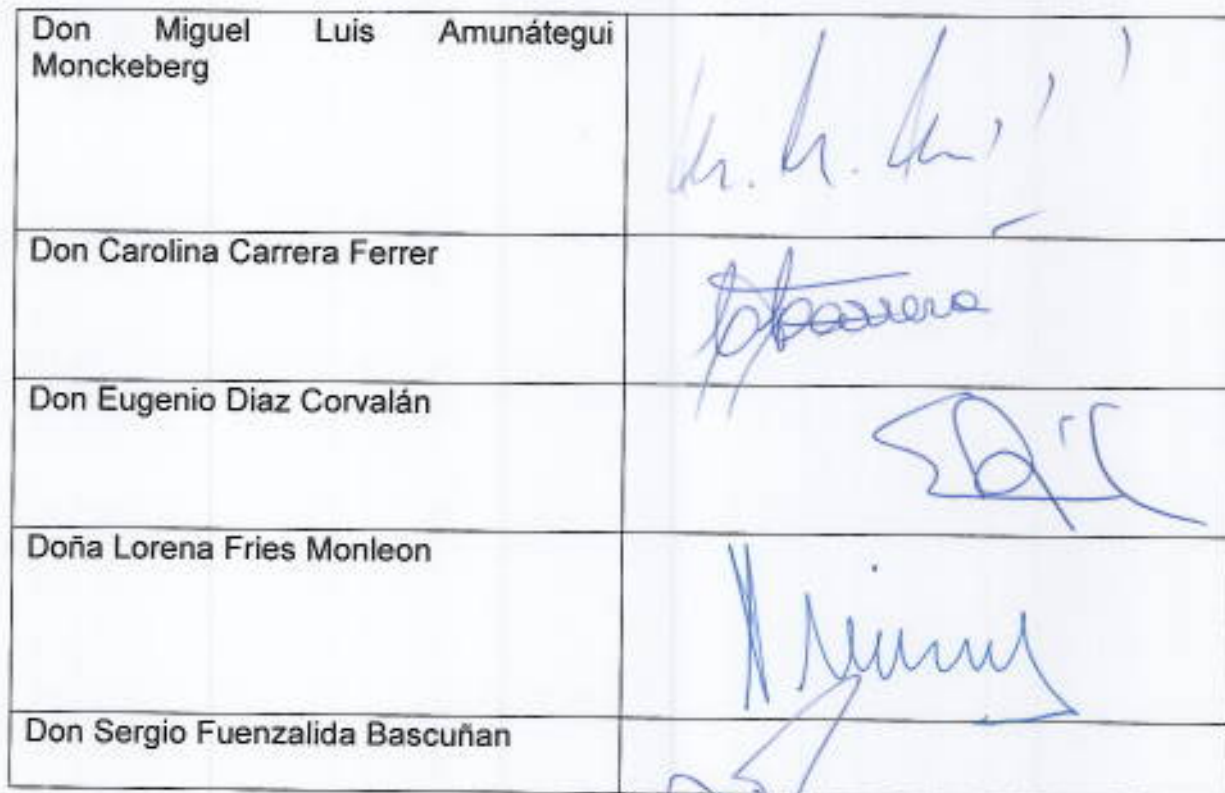 Don Miguel Luis Amunátegui
Monckeberg
Don Carolina Carrera Ferrer
Don Eugenio Diaz Corvalán
Doña Lorena Fries Monleon
Don Sergio Fuenzalida Bascuñan